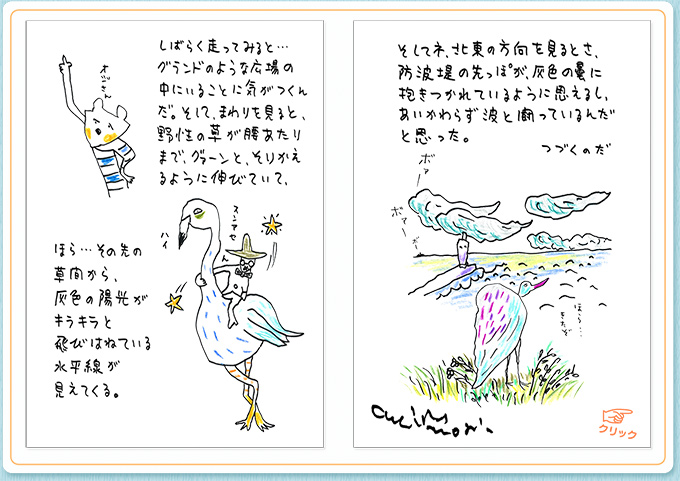 しばらく走ってみると…
グランドのような広場の
中にいることに気がつくん
だ。そして、まわりを見ると、
野性の草が腰あたり
まで、グゥーンと、そりかえ
るように伸びていて、
オジさん
スンマセーん
ハイ
ほら…その先の
草間から、
灰色の陽光が
キラキラと
飛びはねている
水平線が
見えてくる。
そしてネ、北東の方向を見るとさ、
防波堤の先っぽが、灰色の雲に
抱きつかれているように思えるし、
あいかわらず波と闘っているんだ
と思った。
つづくのだ
ボァー
ボァー
ボー
ほら…
きたぞ
クリック